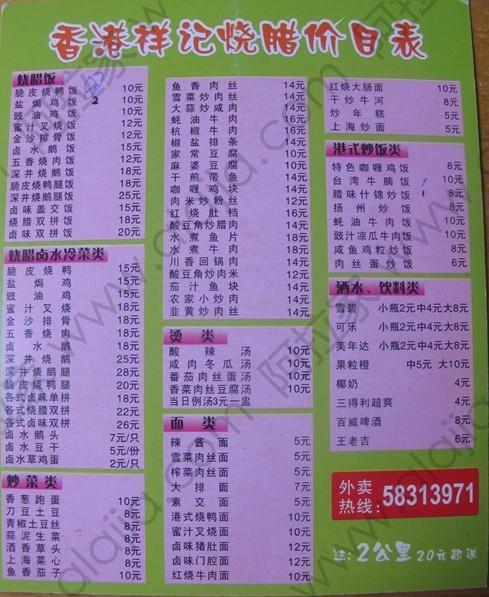 香港祥记烧腊价目表
烧腊饭
脆皮烧鸭饭 10元
盐焗鸡饭 10元
豉油鸡饭 10元
蜜汁叉烧饭 12元
金沙排骨饭 12元
卤水鹅饭 15元
五香烧肉饭 12元
深井烧鹅饭 18元
脆皮烧鸭腿饭 18元
深井烧鹅腿饭 25元
卤味盖交饭 15元
烧腊双拼饭 18元
卤味双拼饭 20元
烧腊卤水冷菜类
脆皮烧鸭 15元
盐焗鸡 15元
豉油鸡 15元
蜜汁叉烧 18元
金沙排骨 18元
五香烧肉 18元
卤水鹅 18元
深井烧鹅 25元
深井烧鹅腿 28元
脆皮烧鸭腿 20元
各式卤味单拼 18元
各式烧腊双拼 22元
各式卤味双拼 26元
卤水鹅头 7元/只
卤水豆干 5元/份
卤水草鸡蛋 2元/只
炒菜类
香葱跑蛋 10元
刀豆土豆 8元
青椒土豆丝 8元
蒜泥生菜 8元
酒香草头 8元
上海菜心 8元
鱼香茄子 10元
鱼香肉丝 14元
雪菜炒肉丝 14元
大蒜炒咸肉 14元
蚝油牛肉 16元
杭椒牛肉 16元
椒盐排条 14元
家常豆腐 10元
麻婆豆腐 10元
干煎带鱼 14元
咖喱鸡块 14元
肉米炒粉丝 12元
红烧肚档 16元
酸豆角炒腊肉 14元
水煮鱼片 18元
水煮牛肉 18元
川香回锅肉 14元
酸豆角炒肉米 12元
茄汁鱼块 14元
农家小炒肉 14元
韭黄炒肉丝 14元
烫类
酸辣汤 10元
咸肉冬瓜汤 10元
番茄肉丝蛋汤 10元
香菜肉丝豆腐汤 10元
当日例汤3元一盅
面类
辣酱面 5元
雪菜肉丝面 5元
榨菜肉丝面 5元
大排面 7元
素交面 5元
港式烧鸭面 10元
蜜汁叉烧面 10元
卤味猪肚面 12元
卤味门腔面 12元
红烧牛肉面 10元
红烧大肠面 10元
干炒牛河 8元
炒年糕 5元
上海炒面 5元
港式炒饭类
特色咖喱鸡饭 8元
台湾牛腩饭 10元
腊味什锦炒饭 8元
扬州炒饭 8元
蚝油牛肉饭 10元
豉汁凉瓜牛肉饭 10元
咸鱼鸡粒炒饭 8元
肉丝蛋炒饭 6元
酒水、饮料类
雪碧 小瓶2元中4元大8元
可乐 小瓶2元中4元大8元
美年达 小瓶2元中4元大8元
果粒橙 中5元 大10元
椰奶 4元
三得利超爽 4元
百威啤酒 8元
王老吉 6元
外卖
热线: 58313971
注: 2公里 20元起送